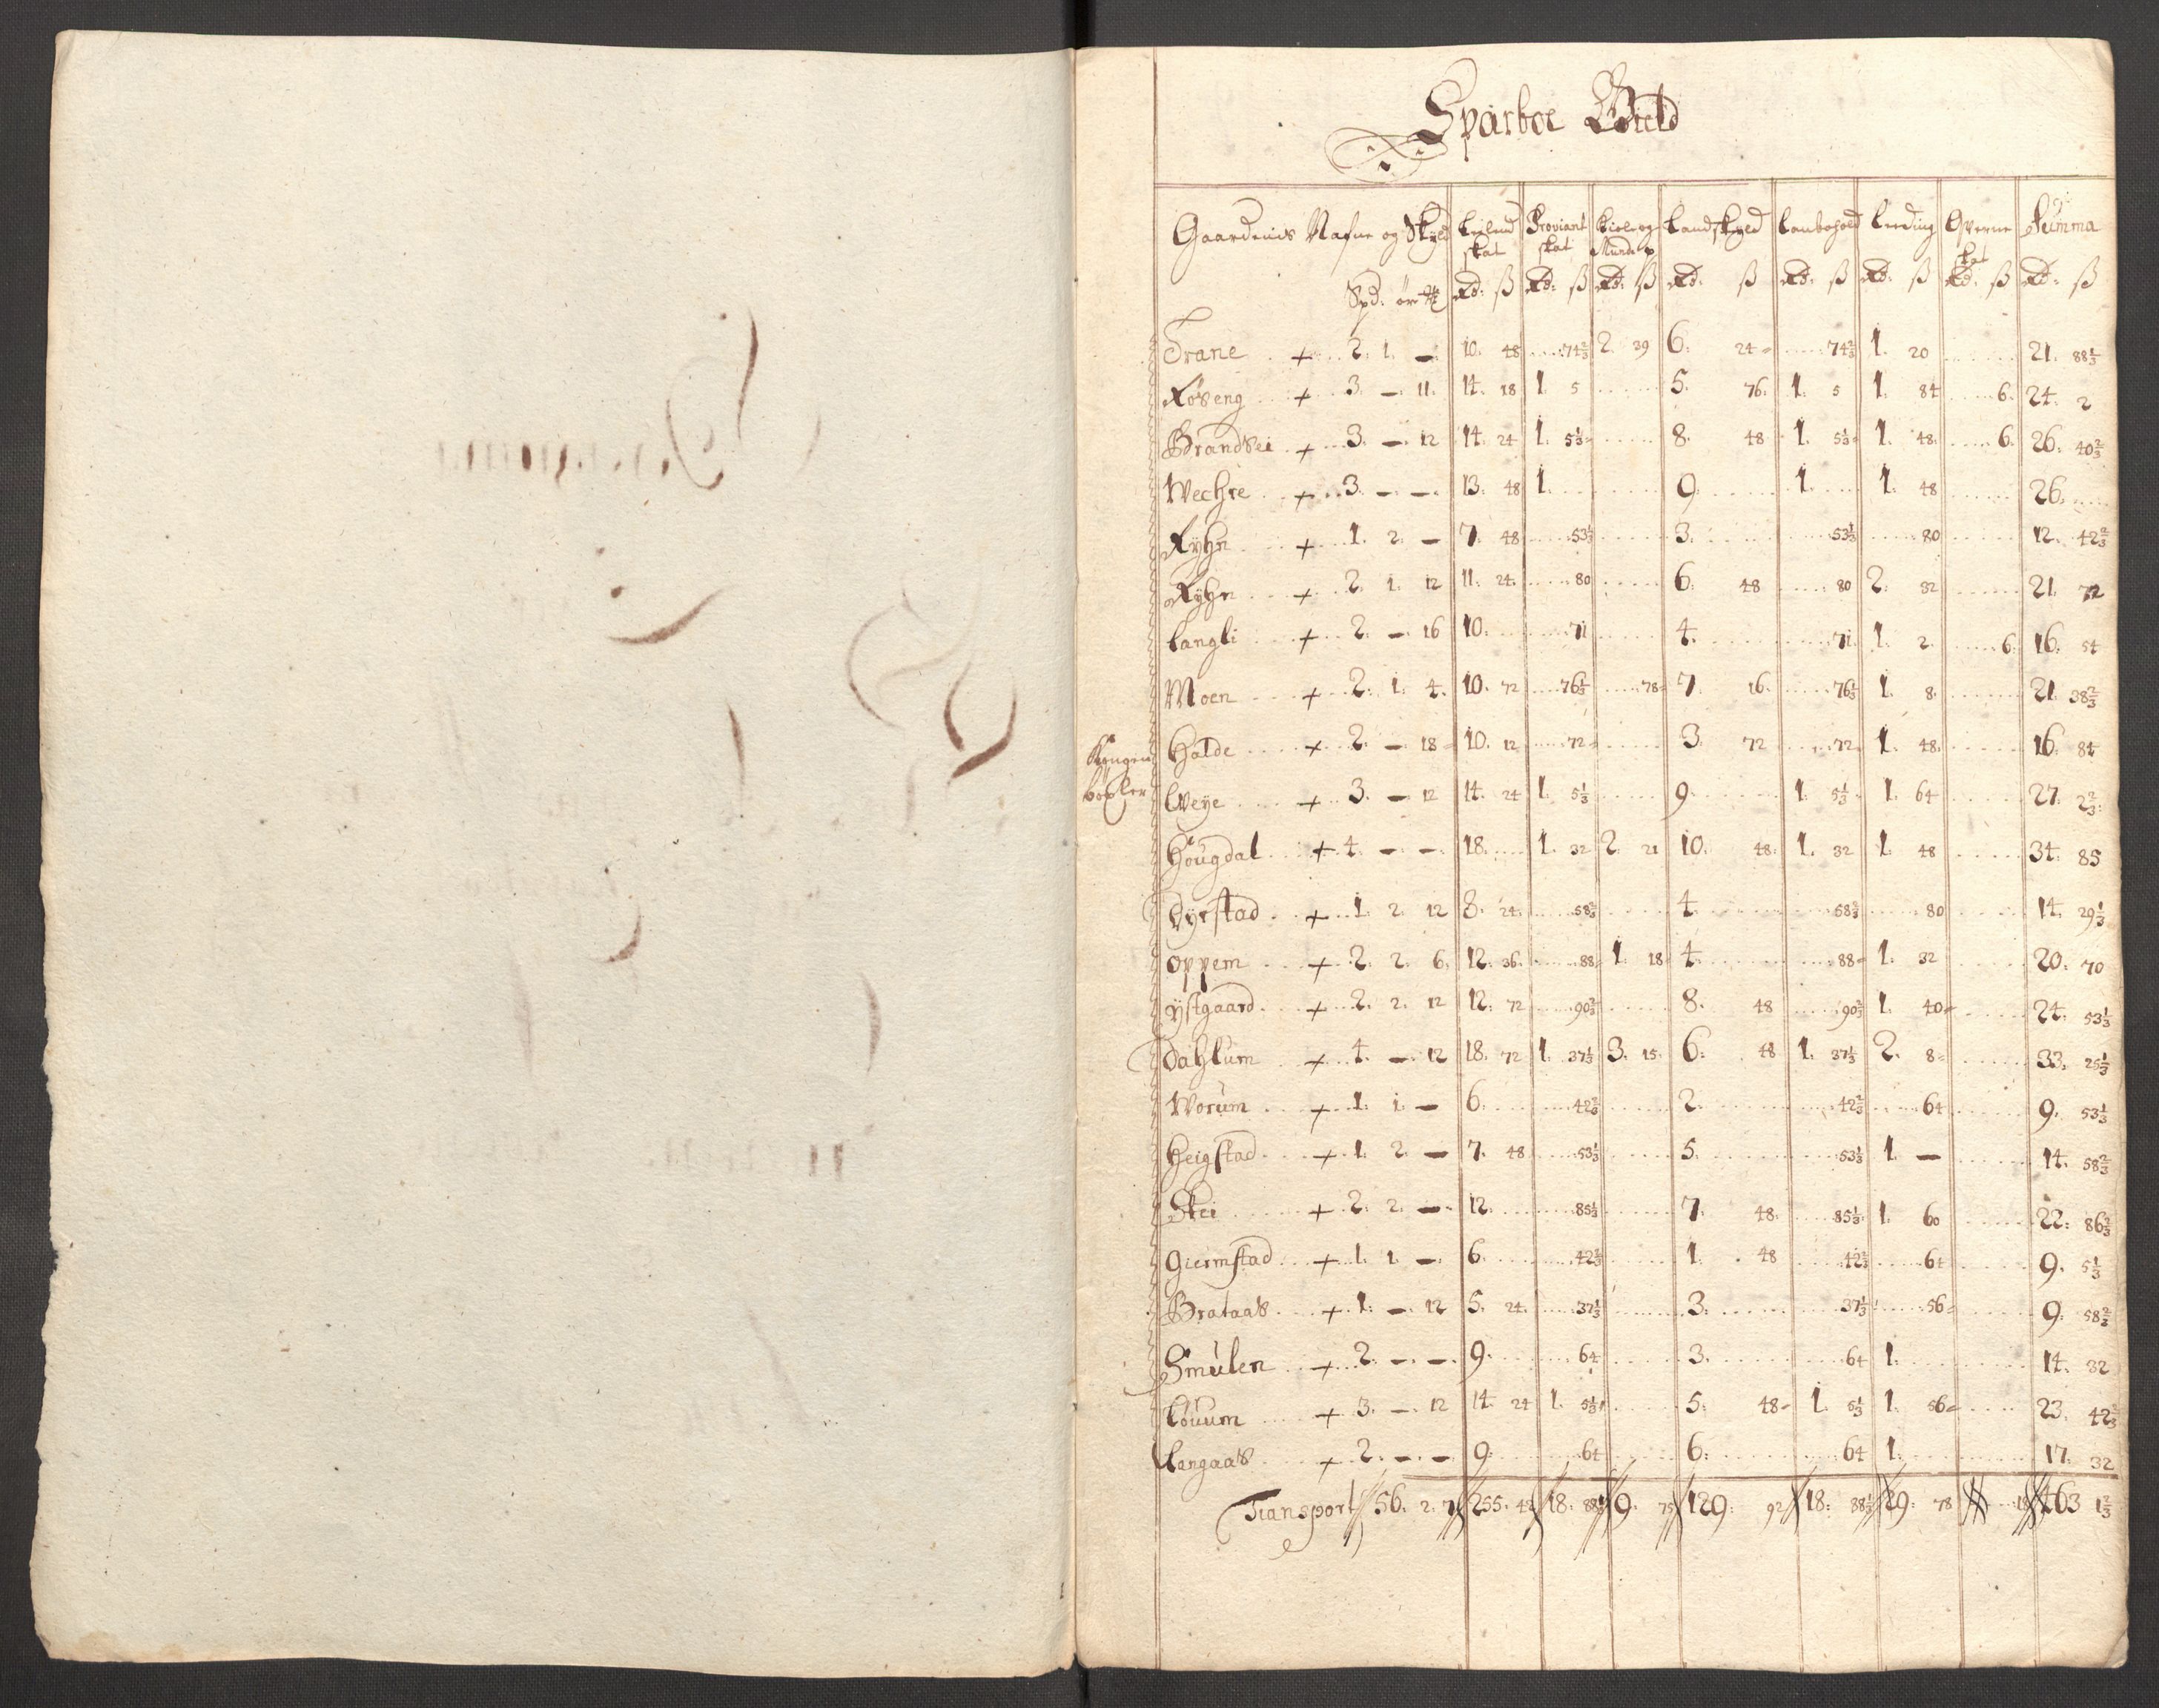 Sparboe Gield
Gaardenis Nafne og Skyld | Leilend skat | Proviant skat | Biole og | Landskyld | Laubohold | Leeding | Qverne skat | Summa
Spd: ör | Rd: ß | Rd: ß | Rd: ß | Rd: ß | Rd: ß | Rd: ß | Rd: ß | Rd: ß
Trane + 2. 1. — | 10. 48 | 74⅔ | 2. 39 | 6. 24 | 74⅔ | 1. 20 | | 21. 88⅓
Röseng + 3. — 11. | 14. 18 | 1. 5 | | 5. 76. | 1. 5 | 1. 84 | 6. | 24. 2
Brandsei + 3. — 12 | 14. 24 | 1. 5⅓ | | 8. 48 | 1. 5⅓ | 1. 48. | 6. | 26. 40⅔
Wechre + 3. — — | 13. 48 | 1. | | 9. | 1. | 1. 48 | | 26.
Ryhn + 1. 2. — | 7. 48 | 53⅓ | | 3. | 53⅓ | 80 | | 12. 42⅔
Ryhn + 2. 1. 12 | 11. 24. | 80 | | 6. 48 | 80 | 2. 32 | | 21. 72
Langli + 2. — 16 | 10. | 71 | | 4. | 71. | 1. 2. | 6. | 16. 54
Moen + 2. 1. 4. | 10. 72 | 76⅓ | 78 | 7. 16. | 76⅓ | 1. 8. | | 21. 38⅔
Halde + 2. — 18 | 10. 12 | 72 | | 3. 72 | 72 | 1. 48. | | 16. 84
Weye + 3. — 12 | 14. 24 | 1. 5⅓ | | 9. | 1. 5⅓ | 1. 64 | | 27. 2⅔
Hougdal + 4. — — | 18. | 1. 32 | 2. 21 | 10. 48. | 1. 32 | 1. 48 | | 34. 85
Dyrstad + 1. 2. 12 | 8. 24. | 58⅔ | | 4. | 58⅔ | 80 | | 14. 29⅓
Oppem + 2. 2. 6. | 12. 36. | 88 | 1. 18 | 4. | 88 | 1. 32 | | 20. 70
ystgaard + 2. 2. 12 | 12. 72 | 90⅔ | | 8. 48 | 90⅔ | 1. 40 | | 24. 53⅓
Dahlum + 4. — 12 | 18. 72 | 1. 37⅓ | 3. 15. | 6. 48 | 1. 37⅓ | 2. 8 | | 33. 25⅓
Worum + 1. 1. — | 6. | 42⅔ | | 2. | 42⅔ | 64 | | 9. 53⅓
Heigstad + 1. 2. — | 7. 48 | 53⅓ | | 5. | 53⅓ | 1. — | | 14. 58⅔
Skei + 2. 2. — | 12. | 85⅓ | | 7. 48. | 85⅓ | 1. 60 | | 22. 86⅔
Giermstad + 1. 1. — | 6. | 42⅔ | | 1. 48 | 42⅔ | 64 | | 9. 5⅓
Brataas + 1. — 12 | 5. 24. | 37⅓ | | 3. | 37⅓ | 56 | | 9. 58⅔
Smulen + 2. — — | 9. | 64 | | 3. | 64 | 1. | | 14. 32
Löuum + 3. — 12 | 14. 24 | 1. 5⅓ | | 5. 48 | 1. 5⅓ | 1. 56 | | 23. 42⅔
Langaas + 2. — — | 9. | 64 | | 6. | 64 | 1. | | 17. 32
Transport 56. 2. 7 | 255. 42 | 18. 88½ | 9. 75 | 129. 92 | 18. 88½ | 29. 78 | 18 | 463 1⅔